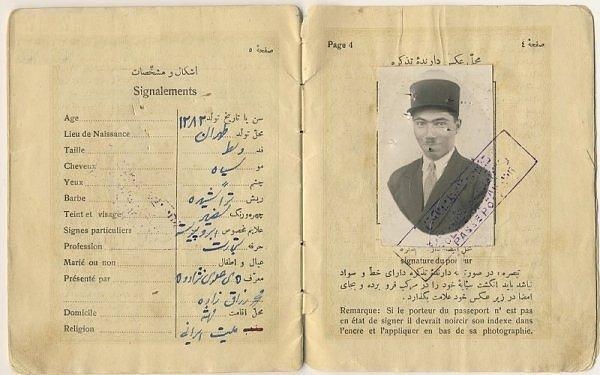 صفحهٔ ۵
اشکال و مشخّصات
Signalements
Age سن یا تاریخ تولد ۱۲۸۲
Lieu de Naissance محلّ تولد طهران
Taille قد وسط
Cheveux مو سیاه
Yeux چشم
Barbe ریش تراشیده
Teint et visage چهره و رنگ
Signes particuliers علایم مخصوص ابرو پیوسته
Profession حرفه تجارت
Marié ou non عیال و اطفال
Présenté par معرّف
زاده
Domicile محلّ اقامت
Religion مذهب ملیت ایرانی
Page 4 صفحهٔ ٤
محلّ عکس دارندهٔ تذکره
PASSEPO
signature du porteur
تبصره: در صورتیکه دارندهٔ تذکره دارای خطّ و سواد
نباشد باید انگشت سبّابهٔ خود را در مرکّب فرو برده و بجای
امضا در زیر عکس خود علامت بگذارد.
Remarque: Si le porteur du passeport n' est pas
en état de signer il devrait noircir son indexe dans
l'encre et l'appliquer en bas de sa photographie.